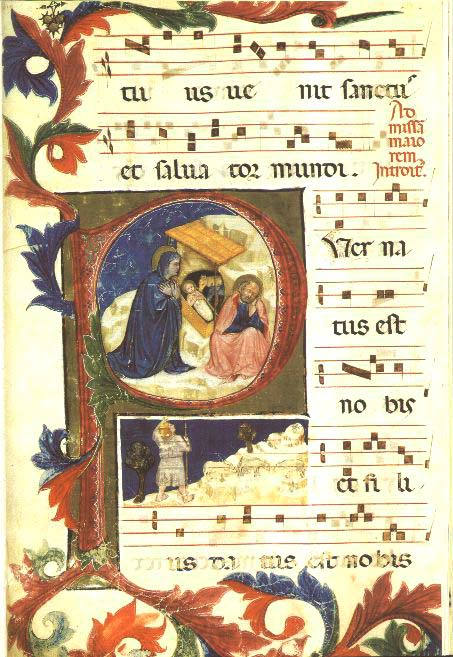 tu us ue nit sanctus
et salua tor mundi.
Ad
missā
maio
rem
Introit.
P
uer na
tus est
no bis
et fi li
us da tus est nobis